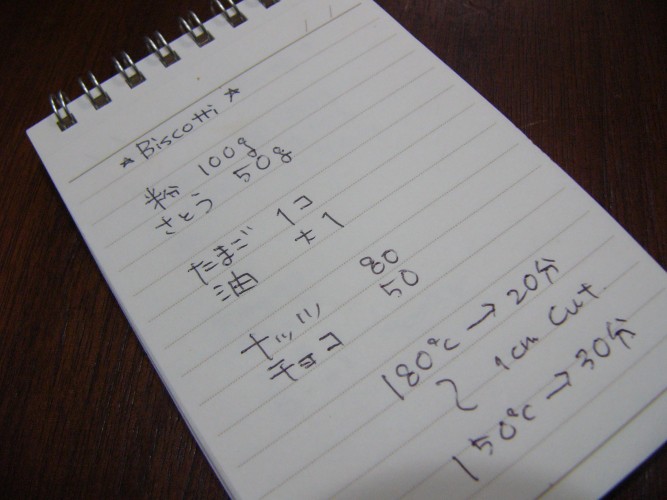 ★ Biscotti ★
粉 100g
さとう 50g
たまご 1コ
油 大1
ナッツ 80
チョコ 50
180℃ → 20分
1cm cut.
150℃ → 30分